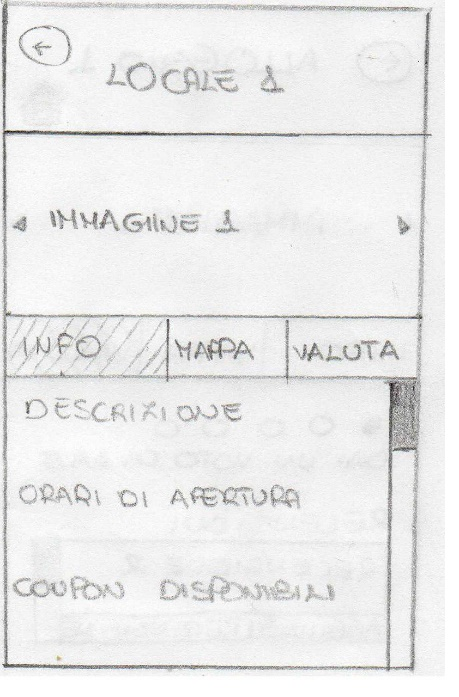 LOCALE 1
IMMAGINE 1
INFO MAPPA VALUTA
DESCRIZIONE
ORARI DI APERTURA
COUPON DISPONIBILI